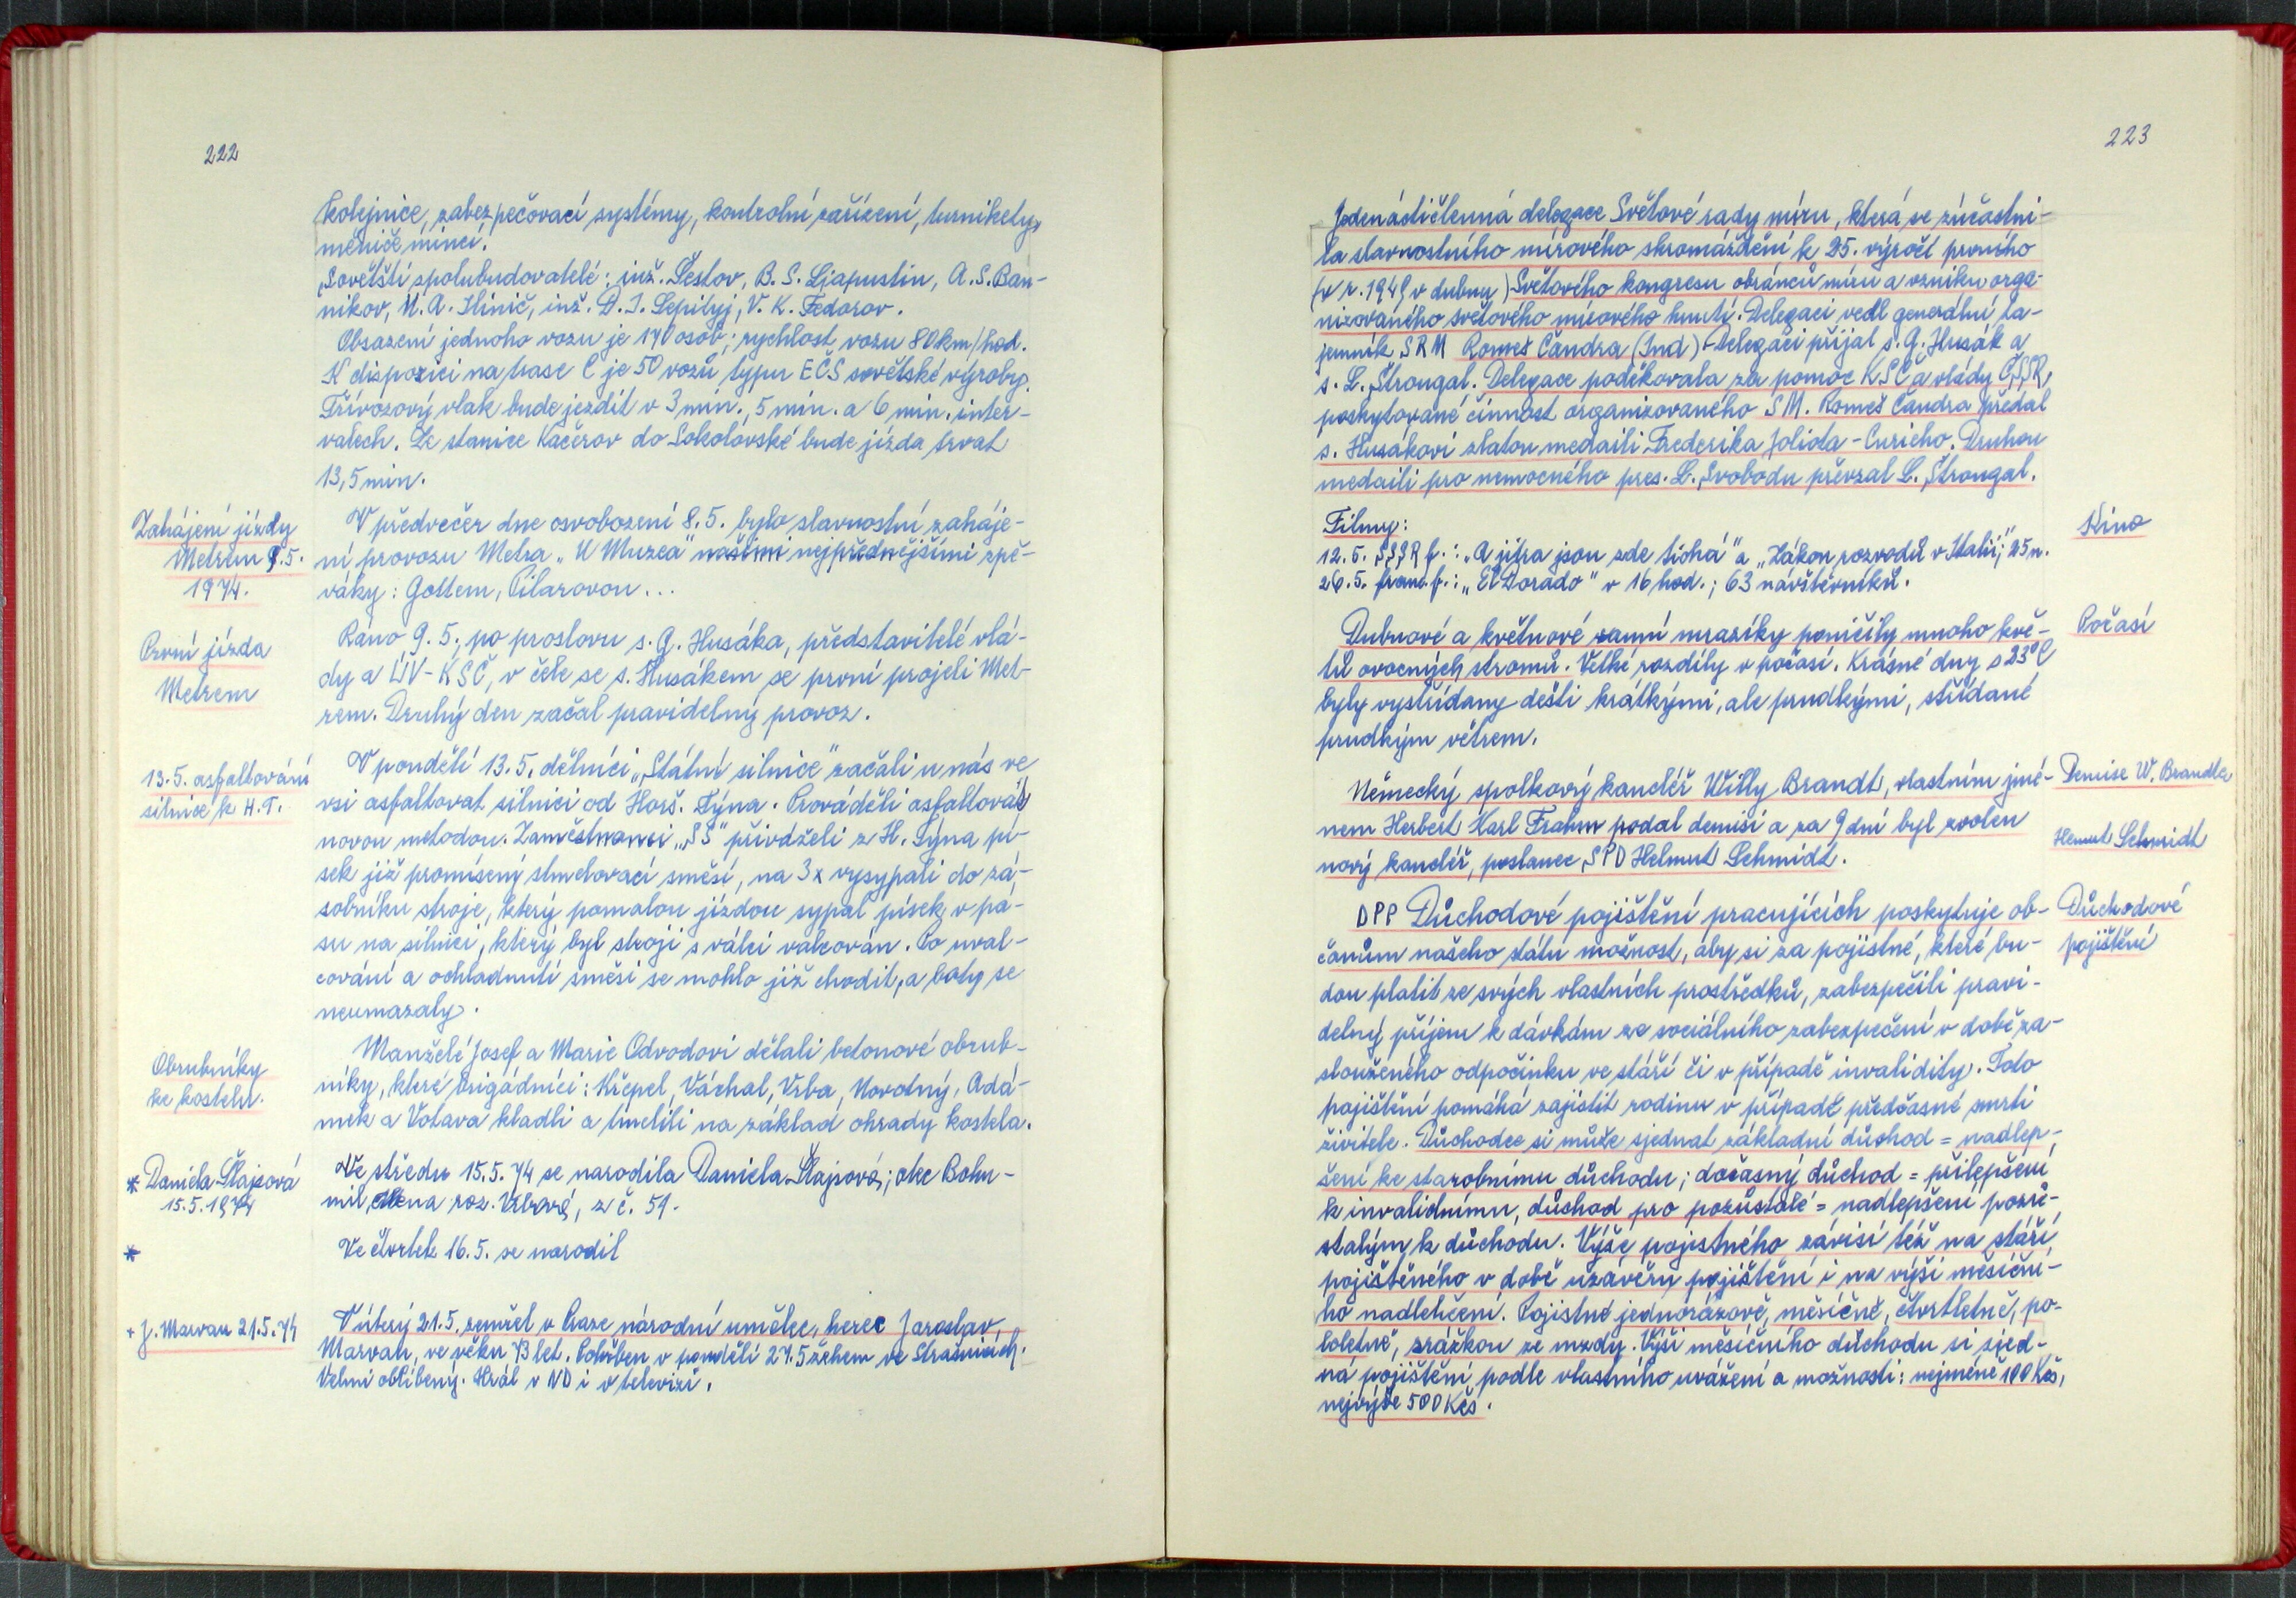 222
kolejnice, zabezpečovací systémy, kontrolní zařízení, turnikety,
měniče mincí.
Sovětští spolubudovatelé: inž. Šestov, B. S. Ljapustin, A. S. Ban-
nikov, N. A. Ilinič, inž. D. I. Lepilyj, V. K. Fedorov.
Obsazení jednoho vozu je 170 osob; rychlost vozu 80 km/hod.
K dispozici na trase C je 50 vozů typu EČS sovětské výroby.
Třívozový vlak bude jezdit v 3 min., 5 min. a 6 min. inter-
valech. Ze stanice Kačerov do Sokolovské bude jízda trvat
13,5 min.
Zahájení jízdy
Metrem 9.5.
1974.
V předvečer dne osvobození 8.5. bylo slavnostní zaháje-
ní provozu Metra „U Muzea" našimi nejpřednějšími zpě-
váky: Gottem, Pilarovou...
První jízda
Metrem
Ráno 9.5., po proslovu s. G. Husáka, představitelé vlá-
dy a ÚV-KSČ, v čele se s. Husákem se první projeli Met-
rem. Druhý den začal pravidelný provoz.
13.5. asfaltování
silnice k H.T.
V pondělí 13.5. dělníci „Státní silnice" začali u nás ve
vsi asfaltovat silnici od Horš. Týna. Prováděli asfaltování
novou metodou. Zaměstnanci „SS" přiváželi z H. Týna pí-
sek již promísený stmelovací směsí, na 3x vysypali do zá-
sobníku stroje, který pomalou jízdou sypal písek v pá-
su na silnici, který byl stroji s válci valcován. Po uval-
cování a ochladnutí směsi se mohlo již chodit, a boty se
neumazaly.
Obrubníky
ke kostelu.
Manželé Josef a Marie Odvodovi dělali betonové obrub-
níky, které brigádníci: Křepel, Váchal, Vrba, Novotný, Adá-
mek a Votava kladli a tmelili na základ ohrady kostela.
* Daniela Šlajsová
15.5.1974
Ve středu 15.5.74 se narodila Daniela Šlajsová; otec Bohu-
mil, roz. Vrbová, z č. 59.
*
Ve čtvrtek 16.5. se narodil
+ J. Marvan 21.5.74
V úterý 21.5. zemřel v Praze národní umělec, herec Jaroslav
Marvan, ve věku 73 let. Pohřben v pondělí 27.5 žehem ve Strašnicích.
Velmi oblíbený. Hrál v ND i v televizi.
223
Jedenáctičlenná delegace Světové rady míru, která se zúčastni-
la slavnostního mírového shromáždění k 25. výročí prvního
(v r. 1949 v dubnu) Světového kongresu obránců míru a vzniku orga-
nizovaného světového mírového hnutí. Delegaci vedl generální ta-
jemník SRM Romeš Čandra (Ind) - Delegaci přijal s. G. Husák a
s. L. Štrougal. Delegace poděkovala za pomoc KSČ a vlády ČSSR,
poskytované činnost organizovaného SM. Romeš Čandra předal
s. Husákovi zlatou medaili Frederika Joliota-Curieho. Druhou
medaili pro nemocného pres. L. Svobodu převzal L. Štrougal.
Kino
Filmy:
12.5. SSSR f.: „A jitra jsou zde tichá" a „Zákon rozvodů v Italii"; 25 n.
26.5. franc. f.: „El Dorado" v 16 hod.; 63 návštěvníků.
Počasí
Dubnové a květnové ranní mrazíky poničily mnoho kvě-
tů ovocných stromů. Velké rozdíly v počasí. Krásné dny s 23°C
byly vystřídány dešti krátkými, ale prudkými, střídané
prudkým větrem.
Demise W. Brandta
Helmut Schmidt
Německý spolkový kancléř Willy Brandt, vlastním jmé-
nem Herbert Karl Frahm podal demisi a za 9 dní byl zvolen
nový kancléř, poslanec SPD Helmut Schmidt.
Důchodové
pojištění
DPP Důchodové pojištění pracujících poskytuje ob-
čanům našeho státu možnost, aby si za pojistné, které bu-
dou platit ze svých vlastních prostředků, zabezpečili pravi-
delný příjem k dávkám ze sociálního zabezpečení v době za-
slouženého odpočinku ve stáří či v případě invalidity. Toto
pojištění pomáhá zajistit rodinu v případě předčasné smrti
živitele. Důchodce si může sjednat základní důchod = nadlep-
šení ke starobnímu důchodu; dočasný důchod = přilepšení
k invalidnímu, důchod pro pozůstalé = nadlepšení pozů-
stalým k důchodu. Výše pojistného závisí též na stáří
pojištěného v době uzávěru pojištění i na výši měsíční-
ho nadlehčení. Pojistné jednorázově, měsíčně, čtvrtletně, po-
loletně, srážkou ze mzdy. Výši měsíčního důchodu si sjed-
ná pojištění podle vlastního uvážení a možnosti: nejméně 100 Kčs,
nejvýše 500 Kčs.